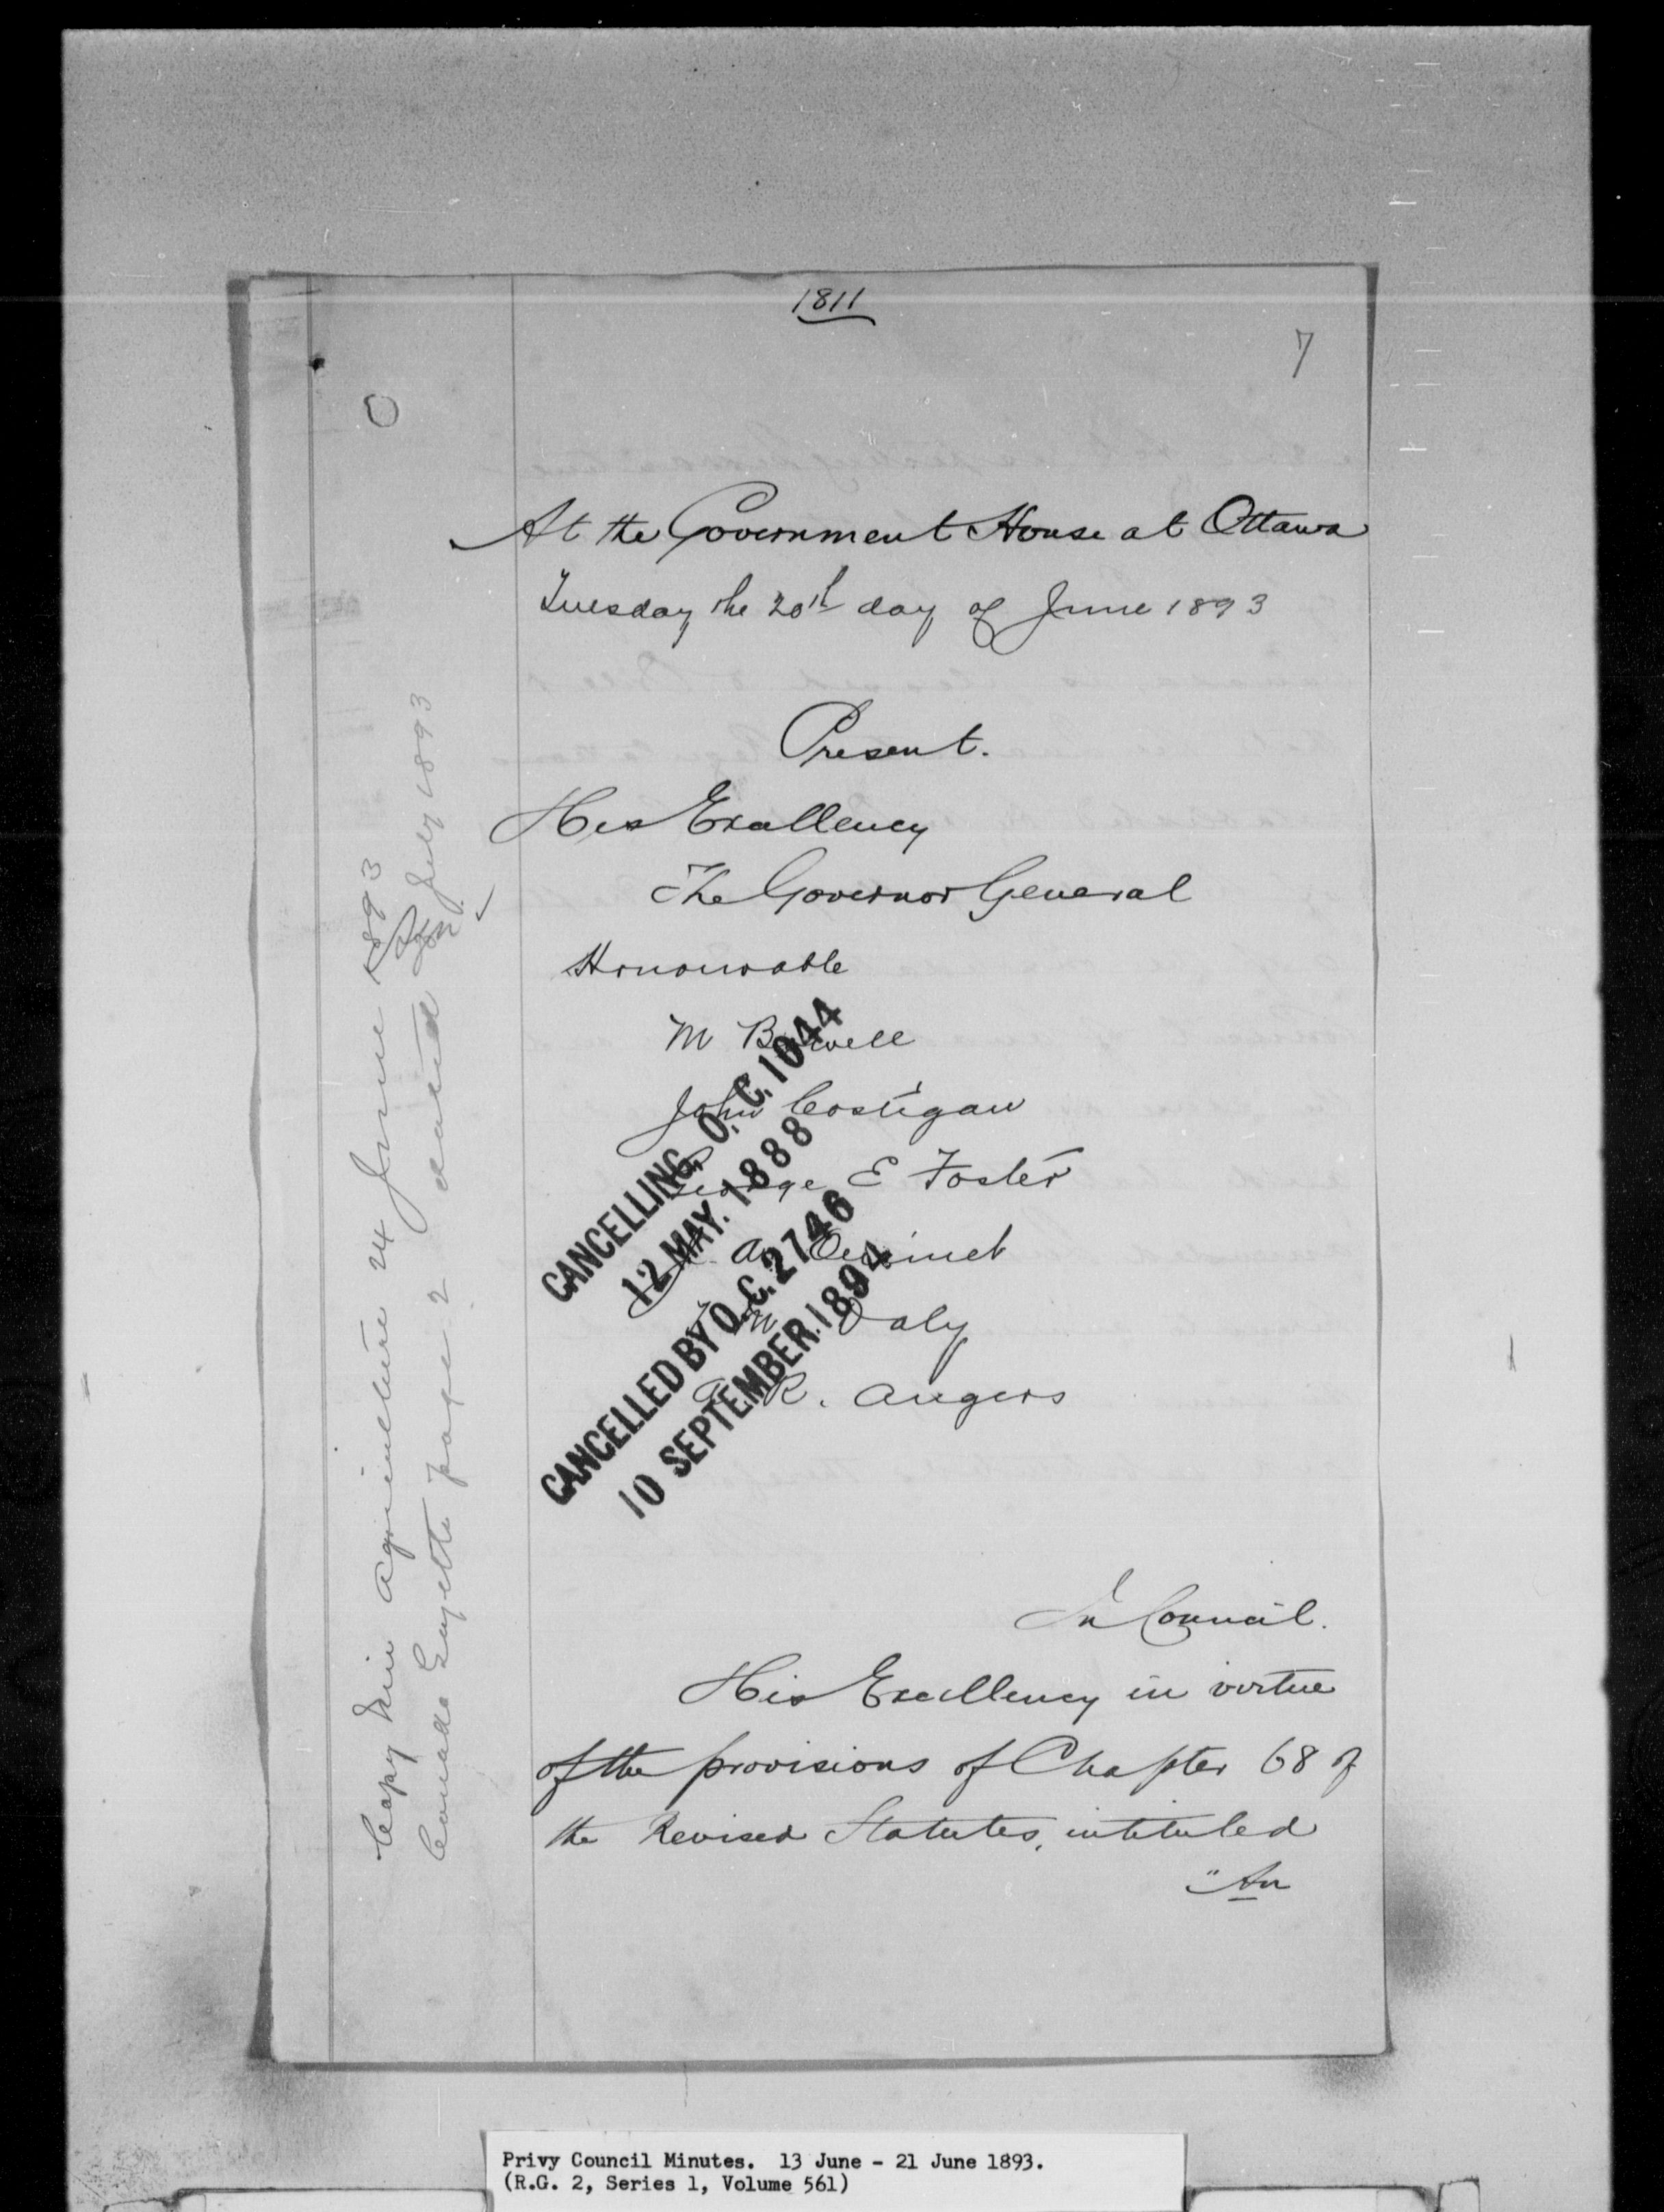 1811
7
At the Government House at Ottawa
Tuesday the 20th day of June 1893
Present.
His Excellency
The Governor General
Honourable
M Bowell
John Costigan
George E Foster
J. A. Ouimet
T M Daly
A. R. Angers
CANCELLING O.C. 1044
12 MAY. 1888
CANCELLED BY O.C. 2746
10 SEPTEMBER. 1894
In Council.
His Excellency in virtue
of the provisions of Chapter 68 of
the Revised Statutes, intituled
"An
Copy Min Agriculture 24 June 1893
Canada Gazette page 2 dated July 1893
Privy Council Minutes. 13 June - 21 June 1893.
(R.G. 2, Series 1, Volume 561)